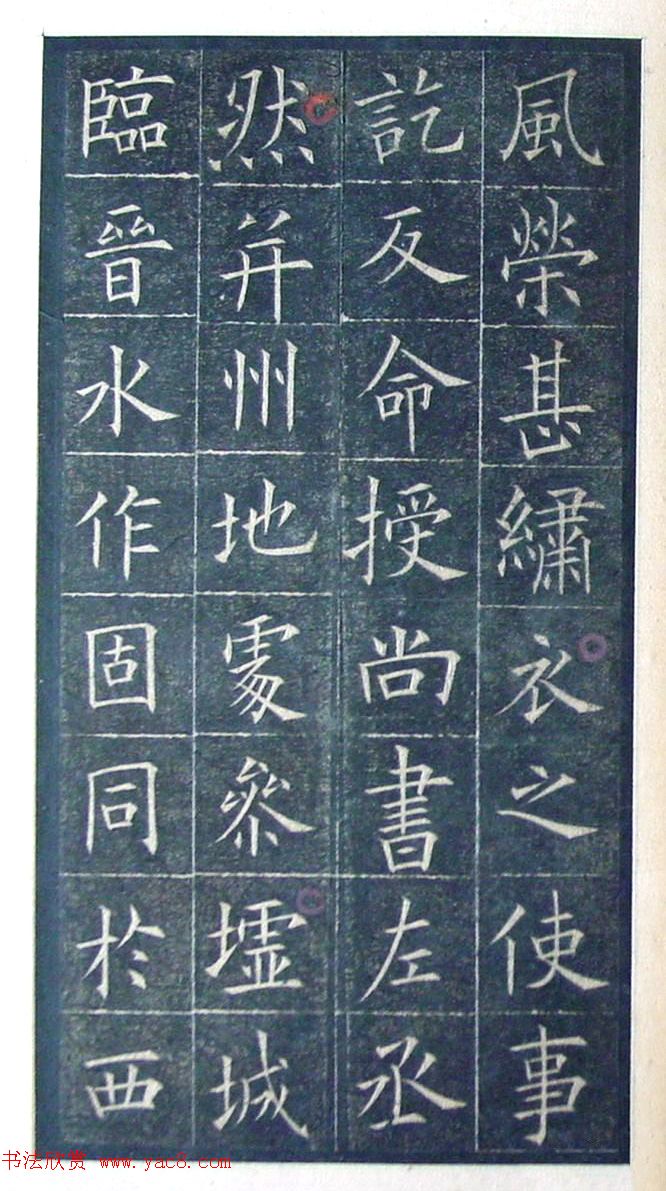 風榮甚繡衣之使事
訖反命授尚書左丞
然并州地處參墟城
臨晉水作固同於西
书法欣赏 www.yac8.com